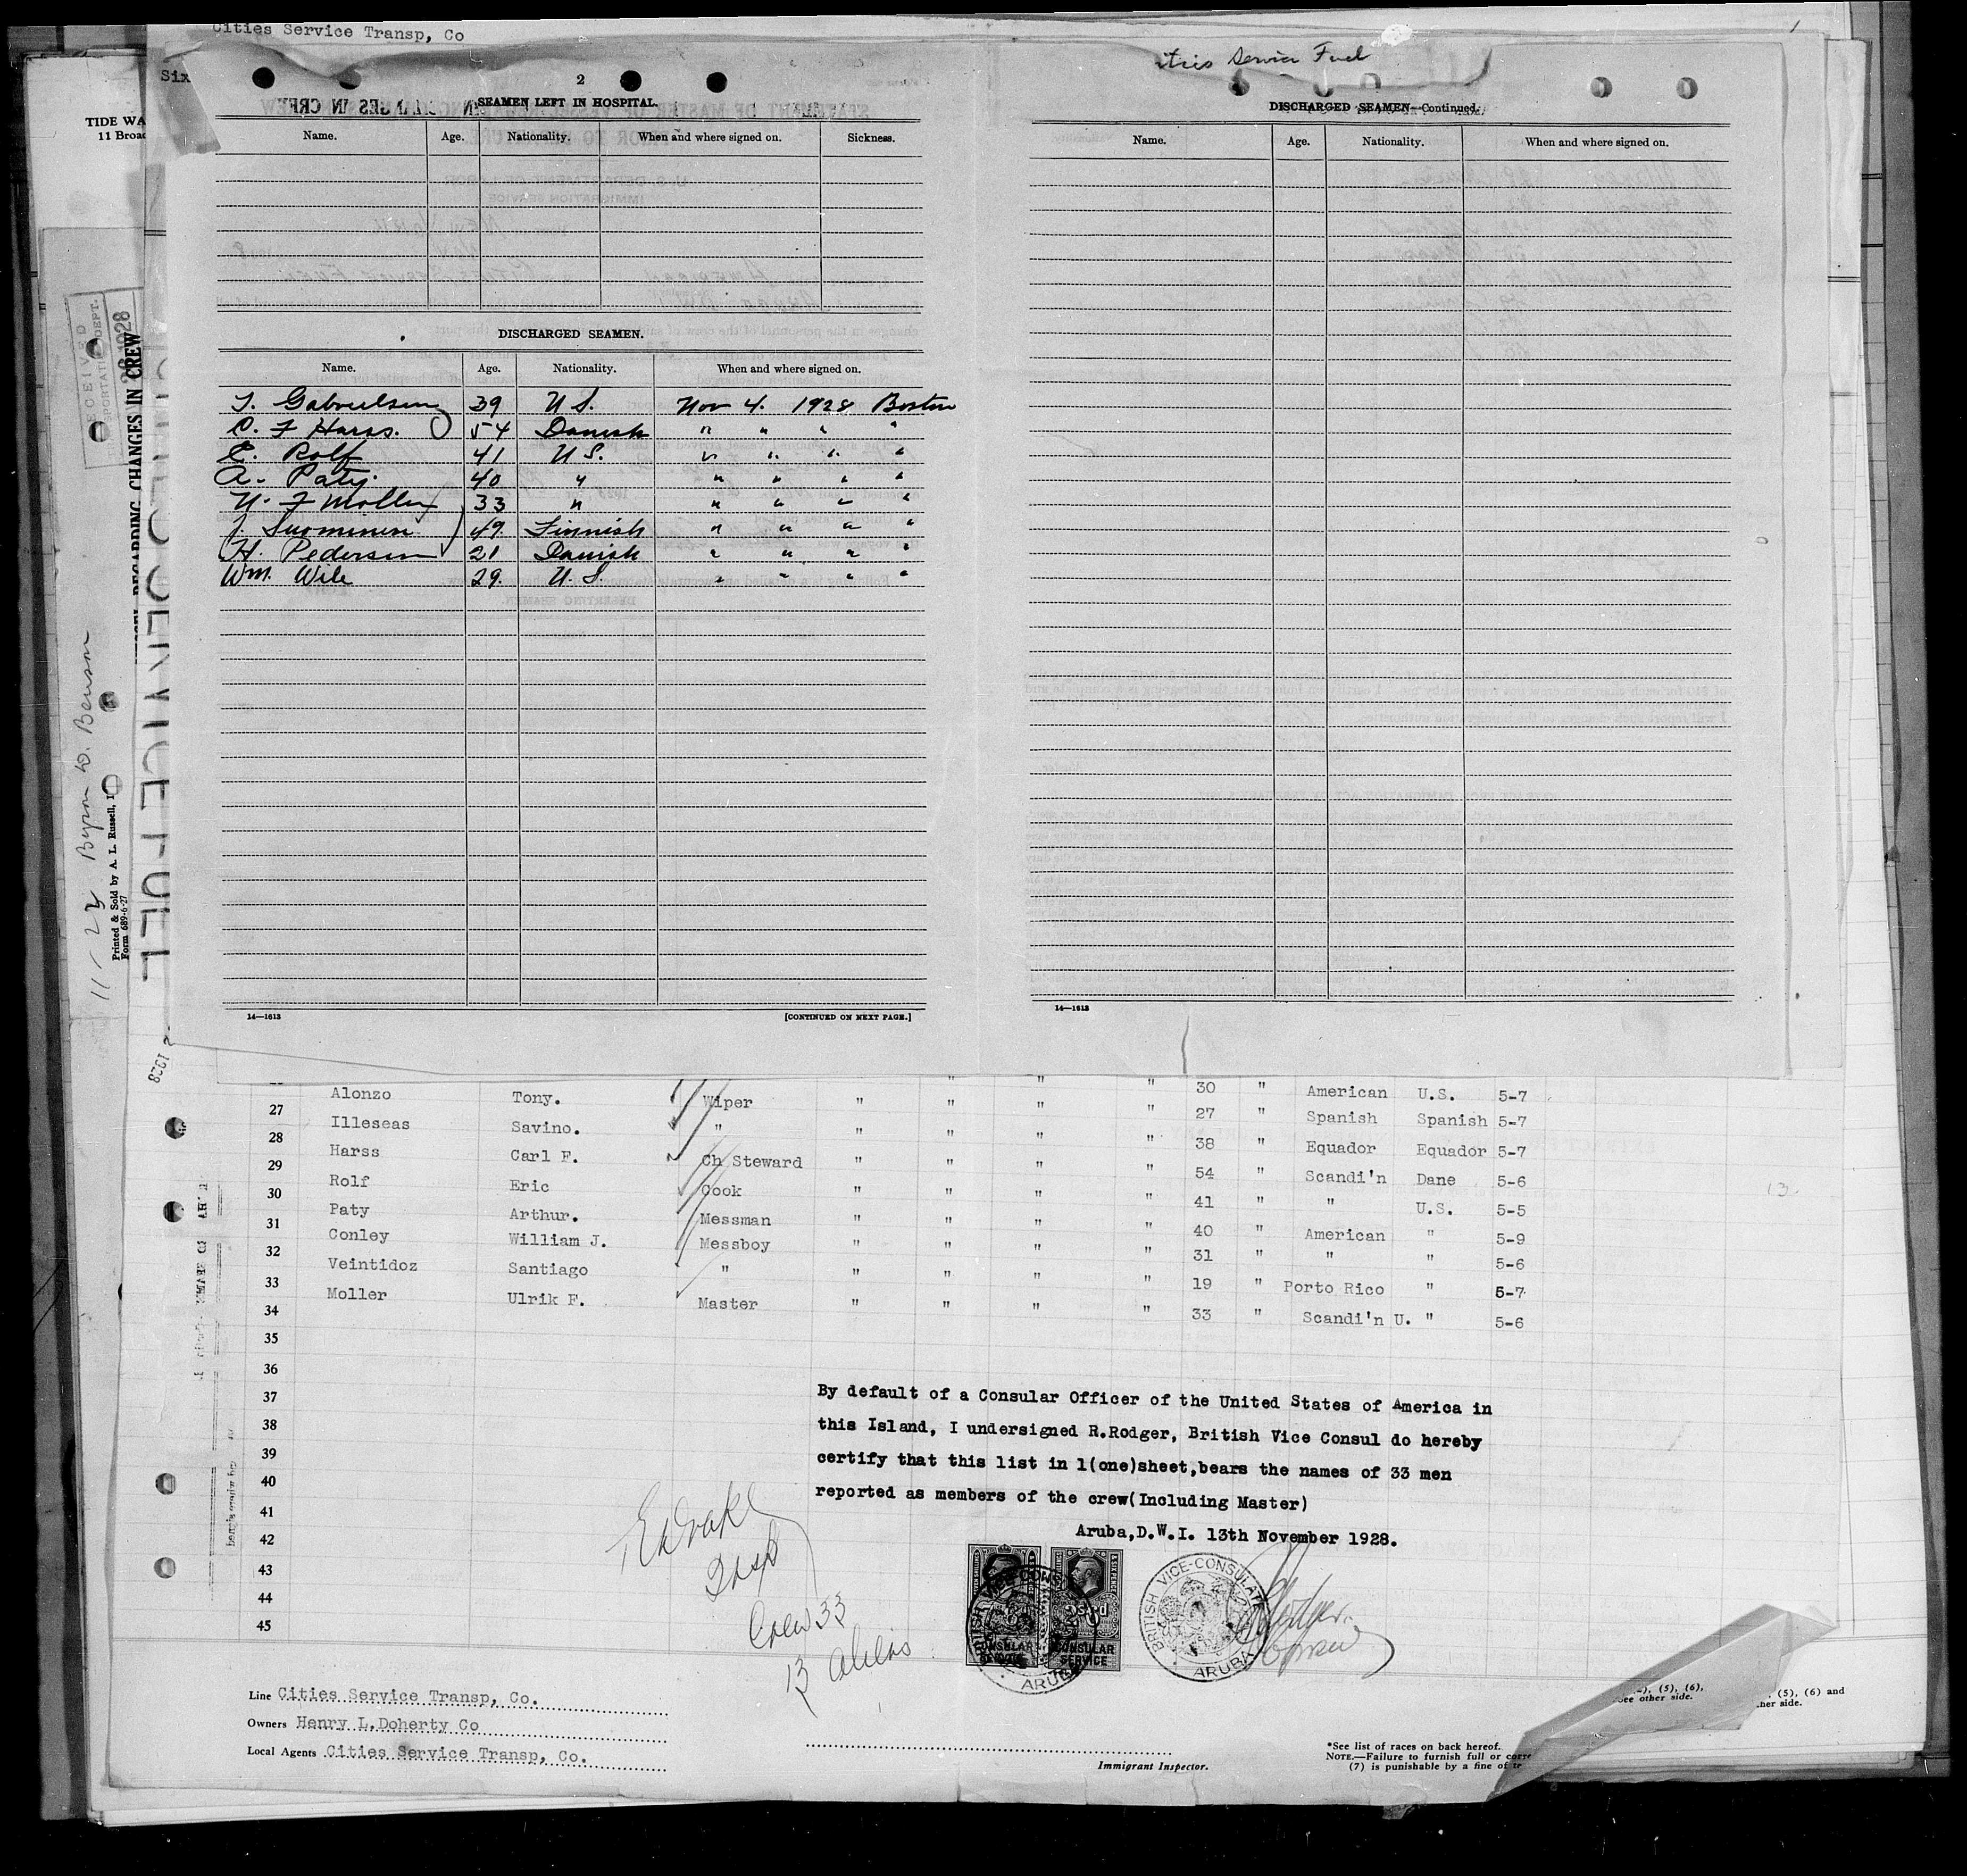 Cities Service Transp, Co
Six
TIDE WA
11 Broad
2
SEAMEN LEFT IN HOSPITAL.
Name. Age. Nationality. When and where signed on. Sickness.
DISCHARGED SEAMEN.
Name. Age. Nationality. When and where signed on.
T. Gabrielsen 39 U S. Nov 4. 1928 Boston
C. F Harss. 54 Danish " " " "
E. Rolf 41 U S. " " " "
A. Paty. 40 " " " " "
U. F Moller 33 " " " " "
J. Suominen 49. Finnish " " " "
H. Pedersen 21 Danish " " " "
Wm. Wile 29. U. S. " " " "
14—1613 [CONTINUED ON NEXT PAGE.]
ities Service Fuel
DISCHARGED SEAMEN—Continued.
Name. Age. Nationality. When and where signed on.
14—1613
RECEIVED
26 1928
REGARDING CHANGES IN CREW
11-22 Byron D. Benson
Printed & Sold by A. L. Russell, I
Form 689-6-27
1928
Alonzo Tony. Wiper " " " " 30 " American U.S. 5-7
27 Illeseas Savino. " " " " " 27 " Spanish Spanish 5-7
28 Harss Carl F. Ch Steward " " " " 38 " Equador Equador 5-7
29 Rolf Eric Cook " " " " 54 " Scandi'n Dane 5-6
30 Paty Arthur. Messman " " " " 41 " " U.S. 5-5
31 Conley William J. Messboy " " " " 40 " American " 5-9
32 Veintidoz Santiago " " " " " 31 " " " 5-6
33 Moller Ulrik F. Master " " " " 19 " Porto Rico " 5-7
34 " " " " 33 " Scandi'n U. " 5-6
13.
35
36
37
38
39
40
41
42
43
44
45
By default of a Consular Officer of the United States of America in
this Island, I undersigned R.Rodger, British Vice Consul do hereby
certify that this list in 1(one)sheet,bears the names of 33 men
reported as members of the crew(Including Master)
Aruba,D.W.I. 13th November 1928.
Insp
Crew 33
13 Aliens
BRITISH VICE-CONSULATE
ARUBA
CONSULAR SERVICE
BRITISH VICE-CONSULATE
ARUBA
Line Cities Service Transp, Co.
Owners Henry L.Doherty Co
Local Agents Cities Service Transp, Co.
Immigrant Inspector.
*See list of races on back hereof.
NOTE.—Failure to furnish full or
(7) is punishable by a fine of
(5), (6),
See other side.
(5), (6) and
her side.